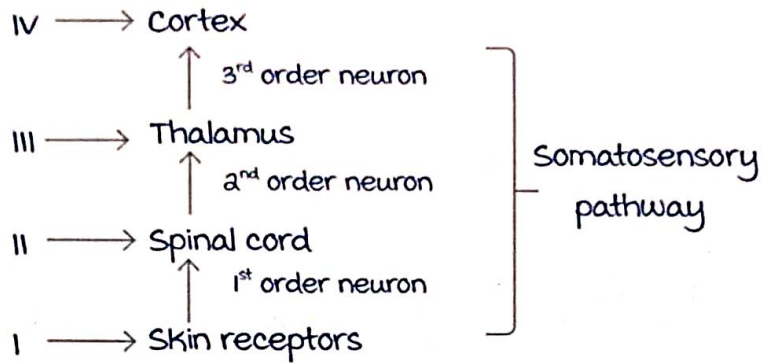 IV → Cortex
↑ 3rd order neuron
III → Thalamus
↑ 2nd order neuron
II → Spinal cord
↑ 1st order neuron
I → Skin receptors
Somatosensory
pathway